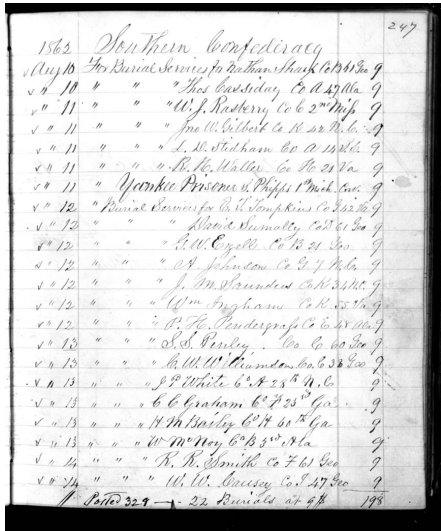 247
1862 Southern Confederacy
v Aug 10 For Burial Services for Nathan Sharp Co B 61 Geo 9
v " 10 " " " Thos Cassiday Co A 47 Ala 9
v " 11 " " " W. J. Rasberry Co C 2nd Miss 9
v " 11 " " " Jno W. Gilbert Co K 42 N.C. 9
v " 11 " " " L. D. Stidham Co A 14 9
v " 11 " " " R. H. Waller Co H 21 Va 9
v " 11 " Yankee Prisoner S. Phipps 1st Mich. Cav. 9
v " 12 " Burial Services for E. T. Tompkins Co G 42 9
v " 12 " " " David Co 61 Geo 9
v " 12 " " " G. W. Ezell Co B 21 Geo 9
v " 12 " " " A. Johnson Co G 7 9
v " 12 " " " J. M. Saunders Co K 34 N.C. 9
v " 12 " " " Wm Ingham Co K. 55 Va 9
v " 12 " " " P. H. Pendergrass Co E 48 Ala 9
v " 13 " " " S. S. Co C. 60 Geo 9
v " 13 " " " C. W. Williamson Co. E 38 Geo 9
v " 13 " " " J P White Co A 28th N. Co 9
v " 13 " " " C C Graham Co F 25 Ga 9
v " 13 " " " H M Bailey Co H 60th Ga 9
v " 13 " " " W McNoy Co B 5 Ala 9
v " 14 " " " R. R. Smith Co F 61 Geo 9
v " 14 " " " W. W. Causey Co I 47 Geo 9
Posted 329 22 Burials at 9$ 198